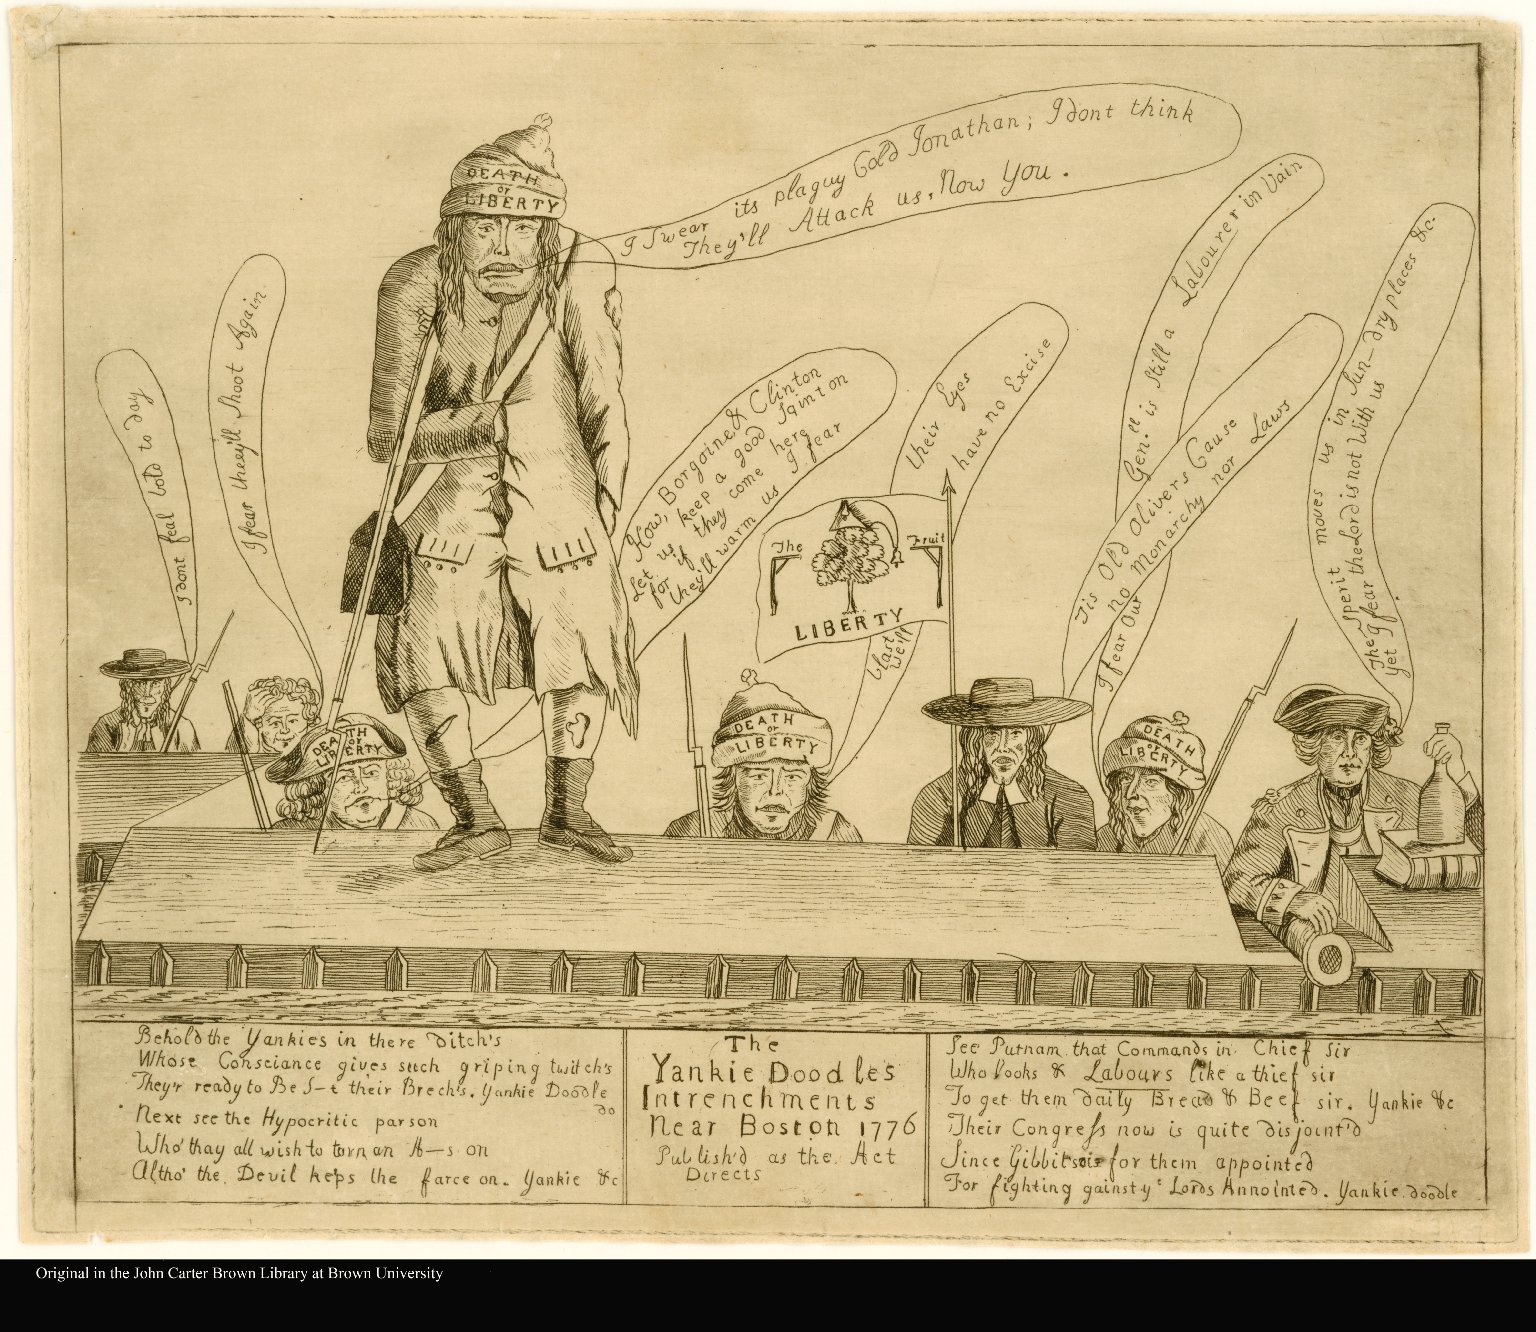 I Swear its plaguy Cold Jonathan; I dont think
They'll Attack us, Now You.
DEATH
or
LIBERTY
I dont feal bold to day
I fear theey'll shoot Again
How, Borgoine & Clinton
Let us keep a good Squnt on
for if they come here
they'll warm us I fear
Blast their Eyes
We'll have no Excise
Gen.ll is still a Labourer in Vain
Tis Old Olivers Cause
no Monarchy nor Laws
I fear Our
The Sperit moves us in Sun-dry places &c.
yet I fear the Lord is not With us
The Fruit
LIBERTY
DEATH
or
LIBERTY
DEATH
or
LIBERTY
DEATH
or
LIBERTY
Behold the Yankies in there Ditch's
Whose Consciance gives such griping twitch's
They'r ready to Be S-t their Brech's. Yankie Doodle
do
Next see the Hypocritic parson
Who thay all wish to turn an A-s on
Altho' the Devil keps the farce on. Yankie &c
The
Yankie Doodles
Intrenchments
Near Boston 1776
Publish'd as the Act
Directs
See Putnam that Commands in Chief Sir
Who looks & Labours like a thief sir
To get them daily Bread & Beef sir. Yankie &c
Their Congress now is quite disjoint'd
Since Gibbits is for them appointed
For fighting gainst ye Lords Annointed. Yankie doodle
Original in the John Carter Brown Library at Brown University